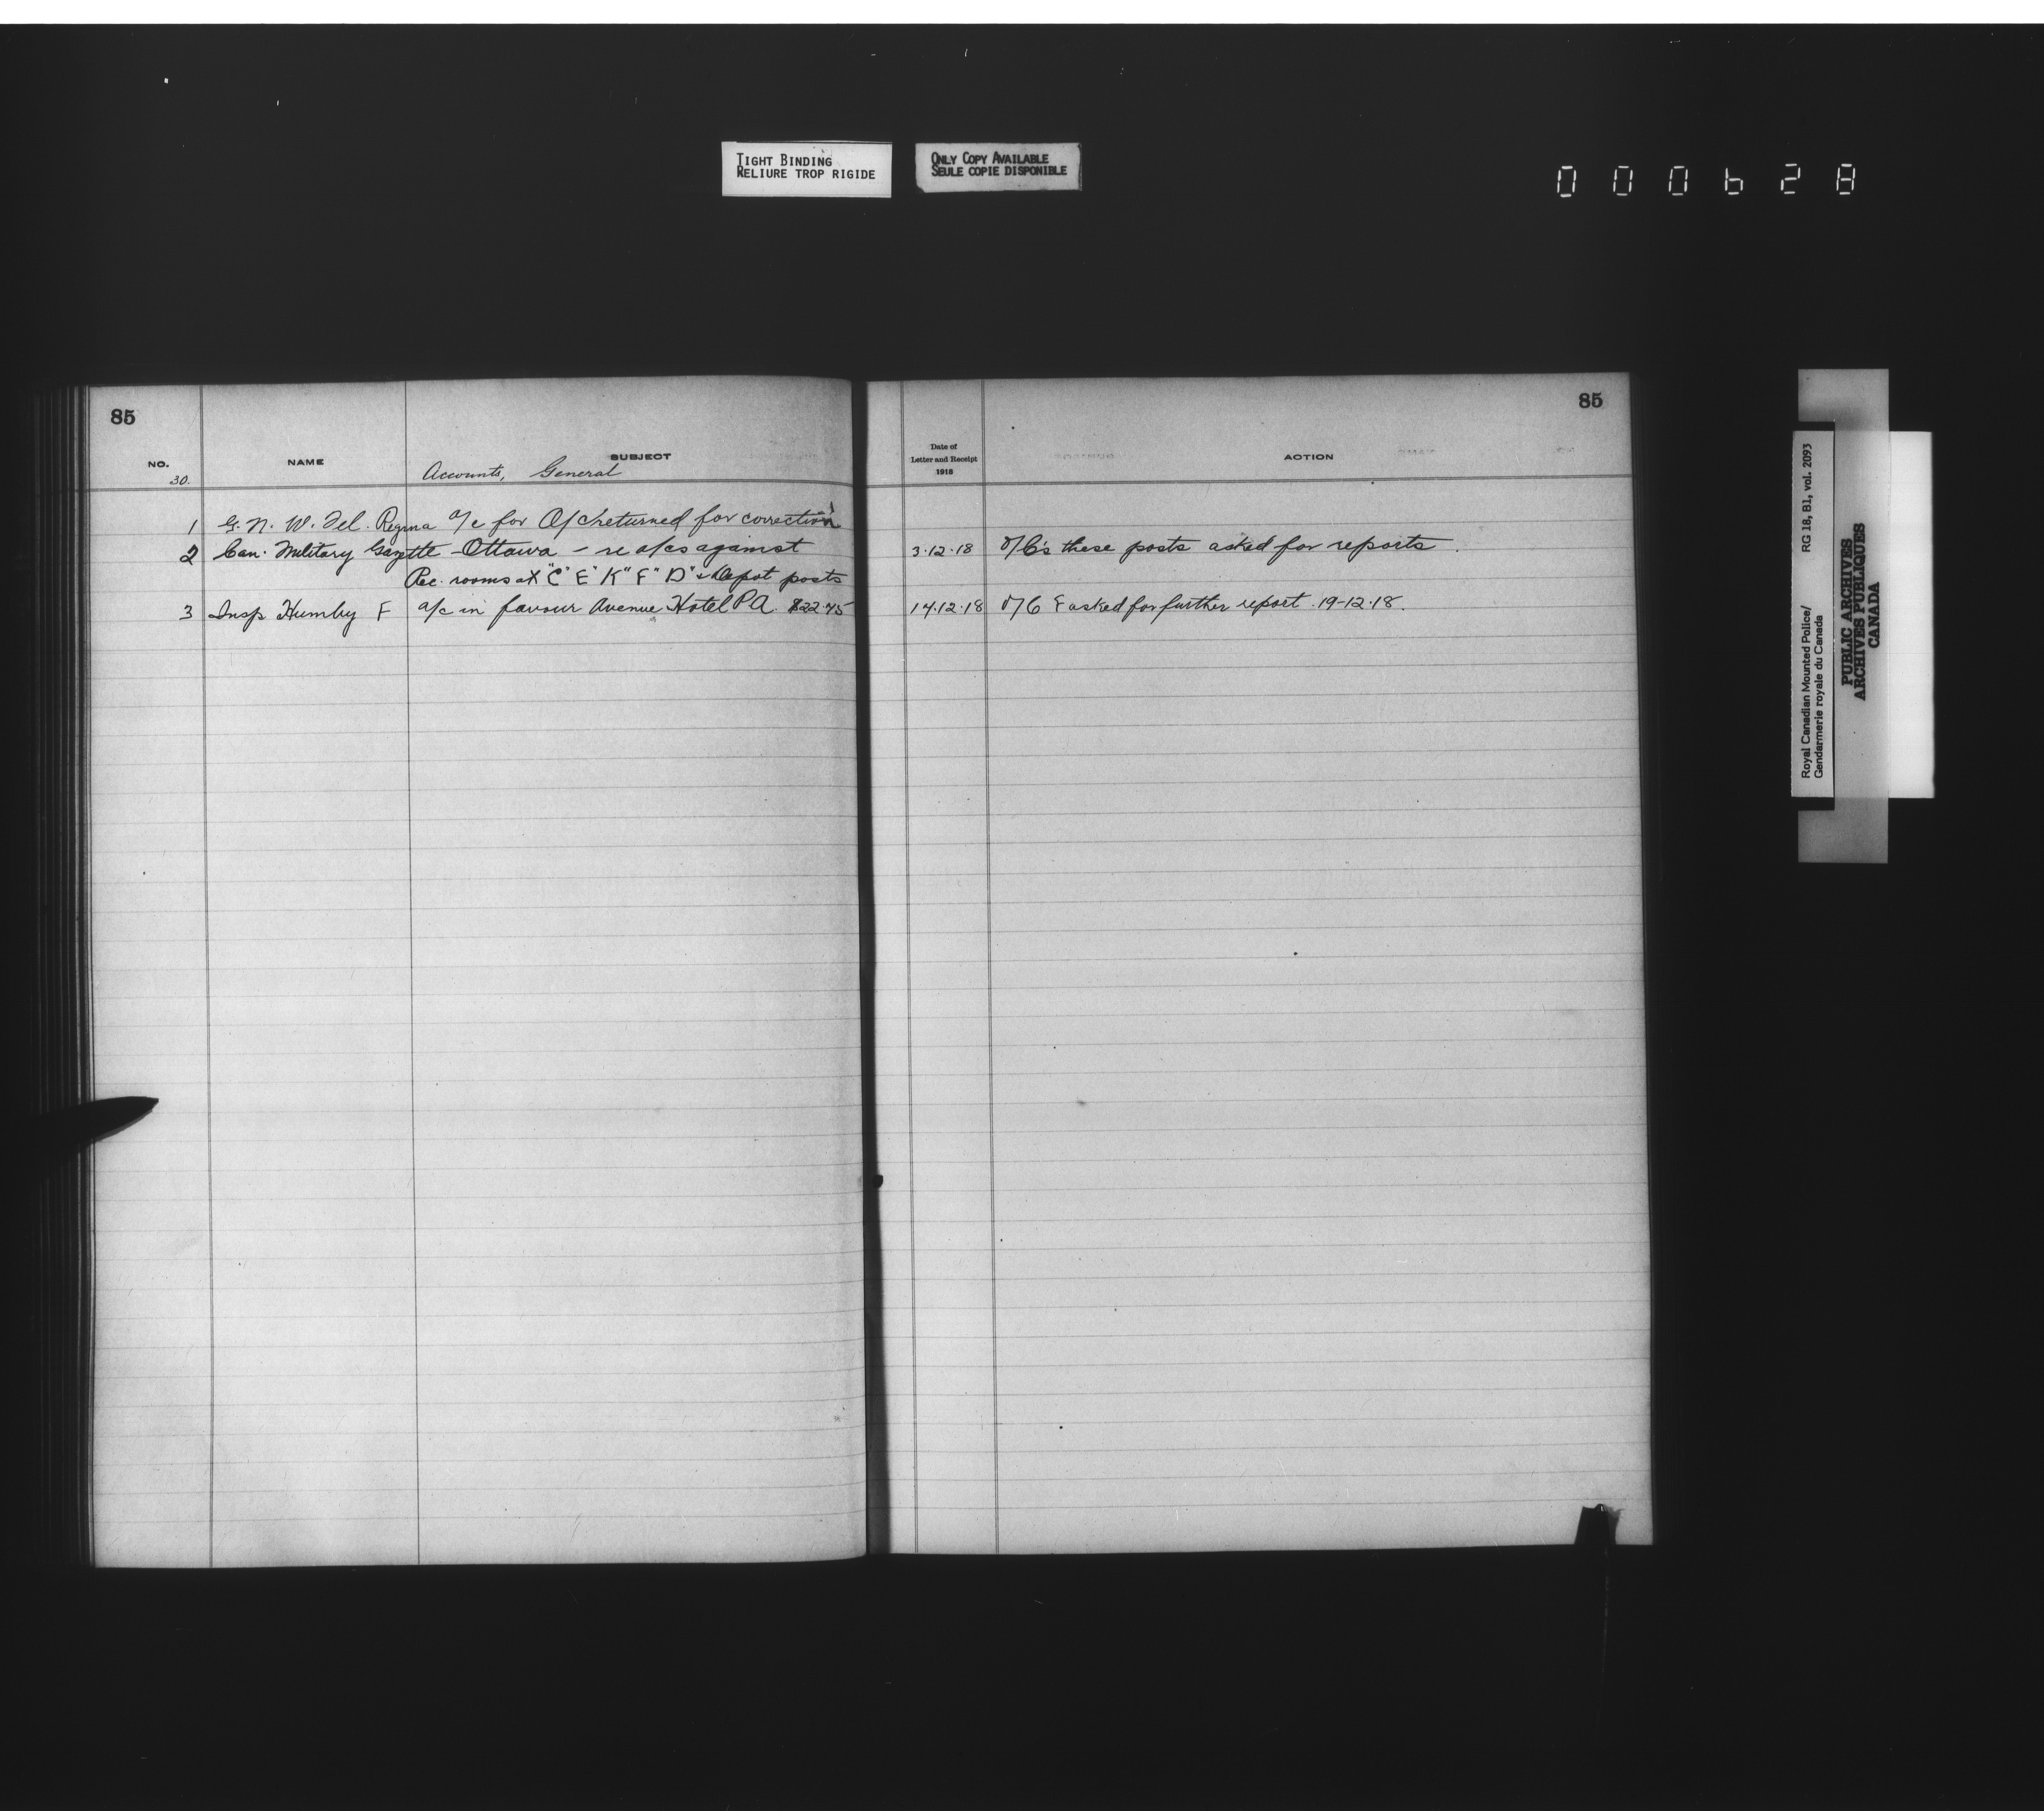 TIGHT BINDING
RELIURE TROP RIGIDE
ONLY COPY AVAILABLE
SEULE COPIE DISPONIBLE
000628
85
NO. NAME SUBJECT
30. Accounts, General
1 G. N. W. Tel. Regina a/c for returned for correction
2 Can. Military Gazette - Ottawa - re a/cs against
Rec. rooms at "C" "E" "K" "F" "D" & Depot posts
3 Insp Humby F a/c in favour Avenue Hotel P A. $22.45
85
Date of
Letter and Receipt
1918
ACTION
3.12.18 O/C's these posts asked for reports.
14.12.18 O/C F asked for further report. 19-12.18.
Royal Canadian Mounted Police/ RG 18, B1, vol. 2093
Gendarmerie royale du Canada
PUBLIC ARCHIVES
ARCHIVES PUBLIQUES
CANADA